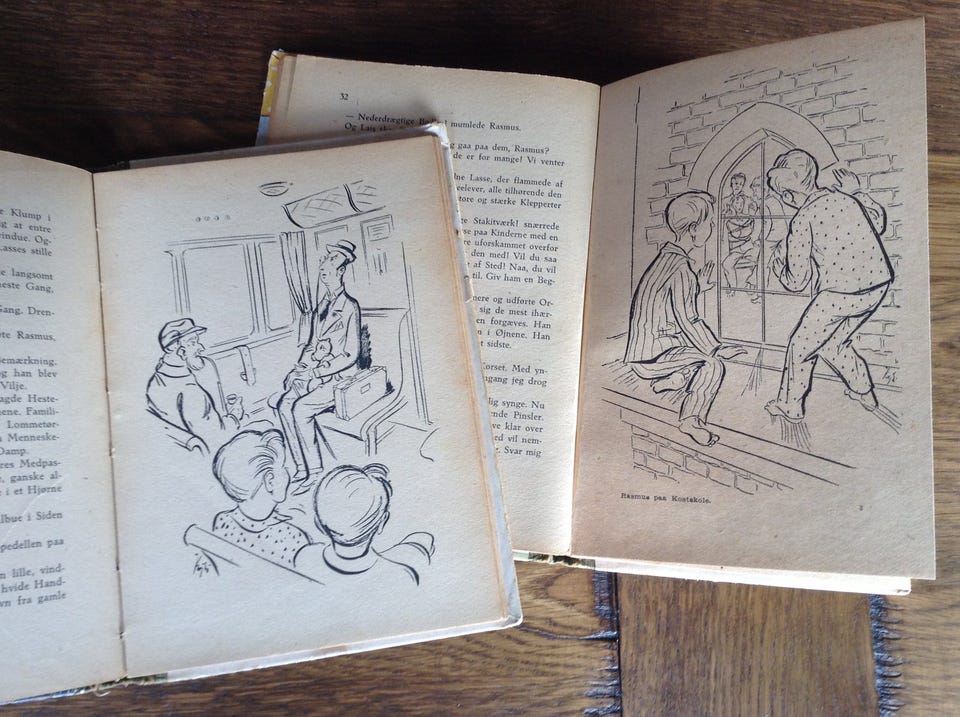 e Klump i
g at entre
indue. Og-
asses stille
e langsomt
neste Gang,
Gang. Dren-
te Rasmus,
emærkning.
g han blev
Vilje.
agde Heste-
nene. Famili-
Lommetør-
Menneske-
Damp.
res Medpas-
e, ganske al-
e i et Hjørne
lbue i Siden
pedellen paa
n lille, vind-
hvide Hand-
vn fra gamle
32
— Nederdrægtige mumlede Rasmus.
Og Lais
g gaa paa dem, Rasmus?
de er for mange! Vi venter
dne Lasse, der flammede af
eelever, alle tilhørende den
tore og stærke Klepperter
Stakitværk! snærrede
se paa Kinderne med en
re uforskammet overfor
den med! Vil du saa
af Sted! Naa, du vil
til. Giv ham en Beg-
nere og udførte Or-
sig de mest ihær-
en forgæves. Han
n i Øjnene. Han
t sidste.
Corset. Med yn-
ngang jeg drog
lig synge. Nu
ende Pinsler.
ve klar over
ed vil nem-
g. Svar mig
Rasmus paa Kostskole.
3